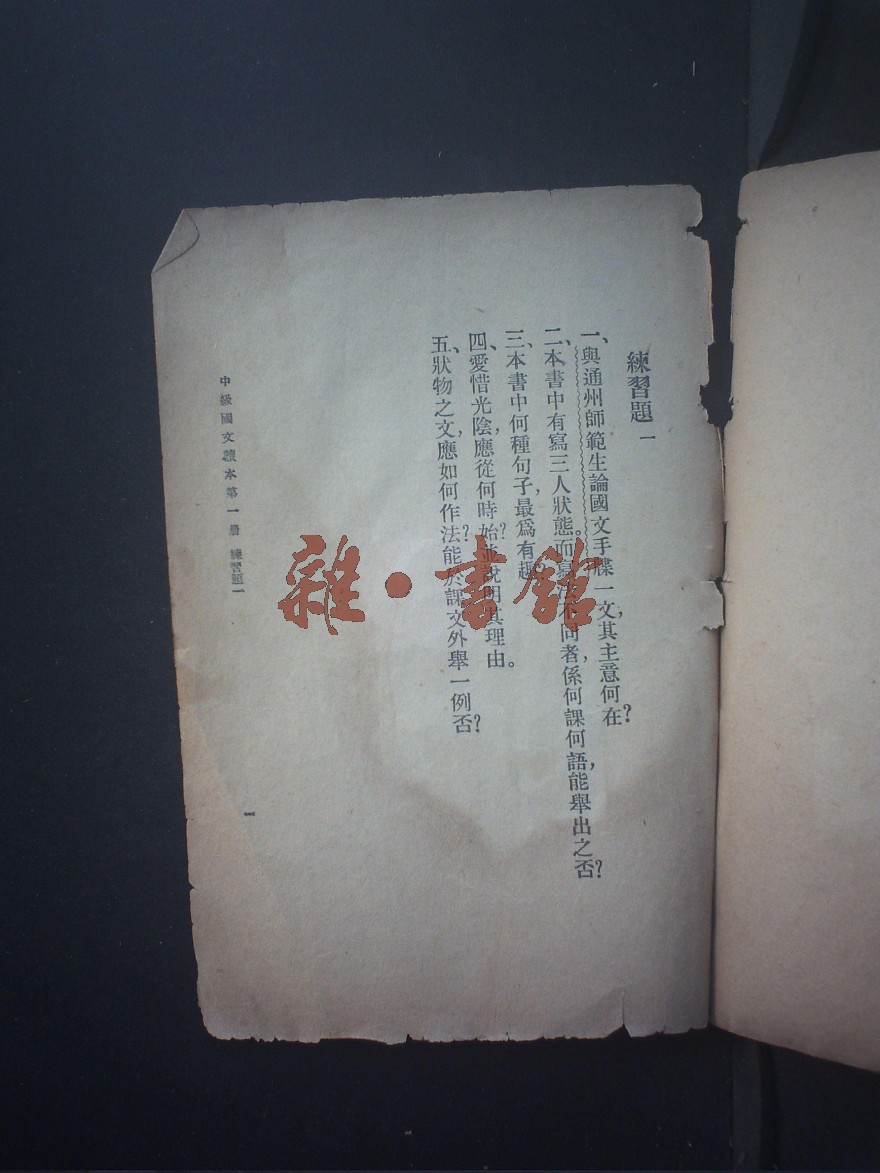 練習題 一
一、與通州師範生論國文手牒一文，其主意何在？
二、本書中有寫三人狀態。而寫法不同者，係何課何語，能舉出之否？
三、本書中何種句子，最爲有趣？
四、愛惜光陰，應從何時始？並說明其理由。
五、狀物之文，應如何作法？能於課文外舉一例否？
中級國文讀本第一册 練習題一
一
雜·書館